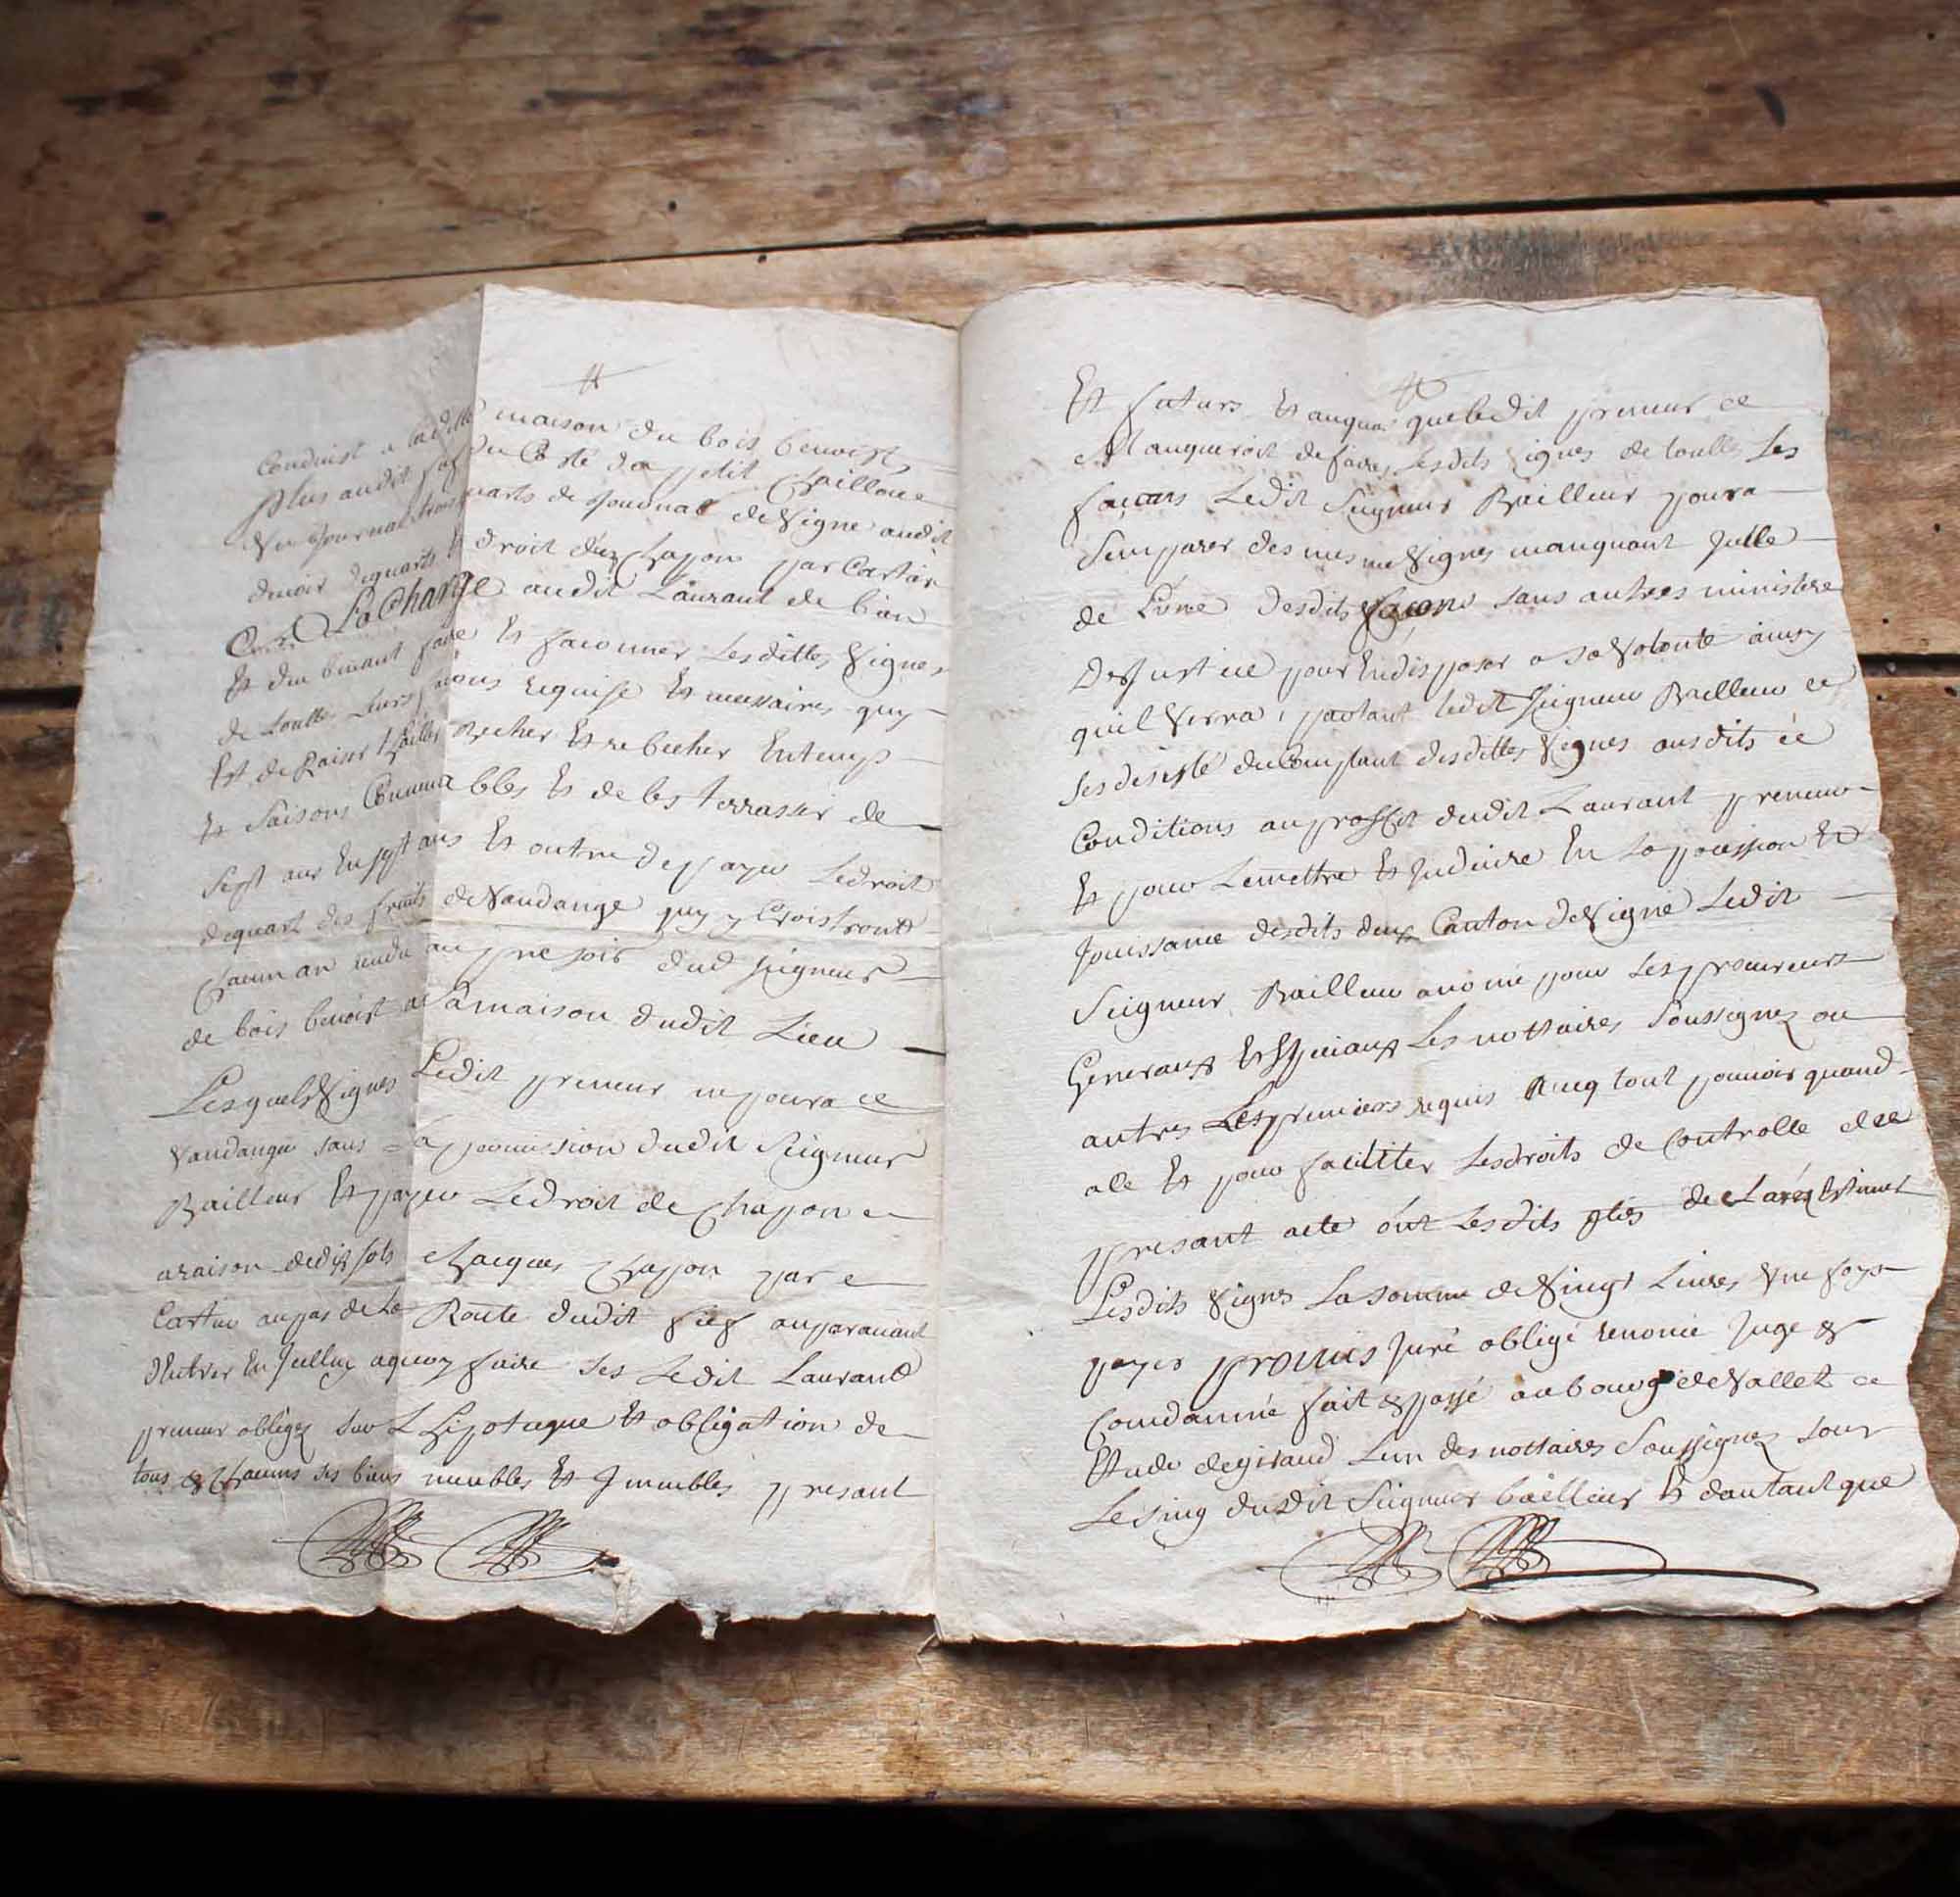 Conduist a laditte maison du bois benoist
plus audit fief du Costé du petit Chaillou
Un Journal trois quarts de Journal de Vigne audit
devoir de quarts & droit de Chapon par Cartier
La Charge audit Laurant de bien
Et duement faire Et faconner Lesdittes Vignes
de toutte Leurs facons requise Et nessaires quy
Est de taiser tailler becher Et rebecher En temps
Et Saisons Connuenables Et de les terrasser de
Sept ans En sept ans Et outre de payer Ledroit
de quart des fruits de Vandange quy y Croistront
Chacun an rendu au presoir dud Seigneur
de bois benoist a Sa maison dudit Lieu
Lesquels Vignes Ledit preneur ne poura
Vandanger sans La permission dudit Seigneur
Bailleur Et payer Ledroit de Chapon
a raison de dix sols Chacques Chapon par
Cartier au pas de La Route dudit fief auparavant
d'Entrer En Jcelluy a quoy faire ses Ledit Laurand
preneur obligez sur L hipoteque Et obligation de
tous & Chacuns ses biens meubles Et Jmeubles presant
Et futurs Et au quas que ledit preneur
Manqueroit de faire Lesdits Vignes de toutte Les
facons Ledit Seigneur Bailleur poura
Semparer des mesme Vignes manquant Jcelle
de Lune desdits facons sans autres ministere
De Justice pour En disposer a Sa Volonté ainsy
quil Verra, partant ledit Seigneur Bailleur
ses desisté du Complant desdittes Vignes ausdits
Conditions au proffit dudit Laurant preneur
Et pour Lemettre Et Jnduire En La possession &
Jouissance desdits deux Canton de Vigne Ledit
Seigneur Bailleur a nomé pour Ses procureurs
Generaux Et Speciaux Les nottaires Soussignez ou
autres Les premiers requis Avecq tout pouvoir quand
a ce Et pour faciliter Lesdroits de Controlle de ce
presant acte ont Lesdits pties declarez Estimer
Lesdits Vignes La somme de Vingt Livres Une foys
payer promis Juré obligé renoncé Jugé &
Condamné fait & passé au bourg de Vallet
Etude de giraud Lun des nottaires Soussignez sous
Le sing dudit Seigneur bailleur Et dautant que